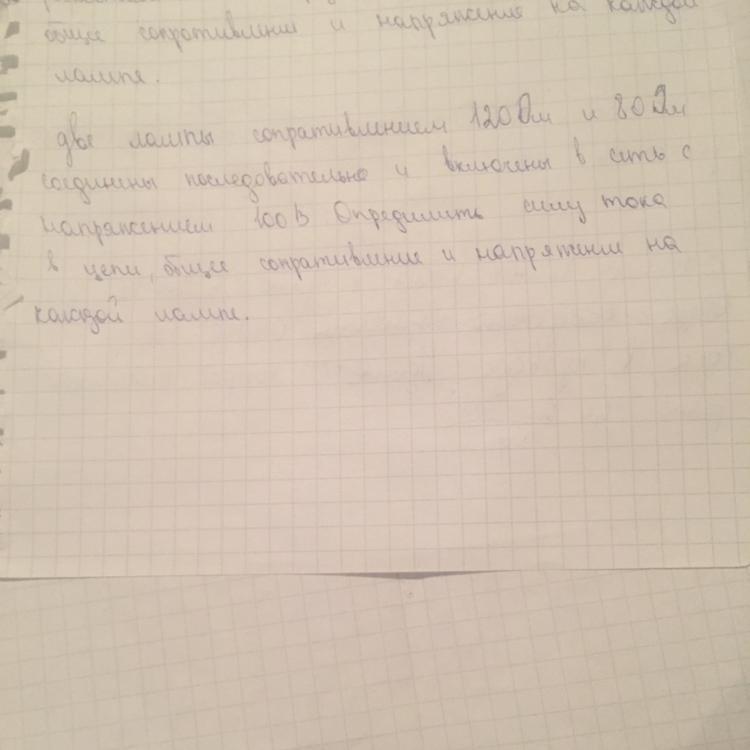 общее сопротивление и напряжение на каждой
лампе.
две лампы сопративлением 120 Ом и 80 Ом
соединены последовательно и включены в сеть с
напряжением 100В Определить силу тока
в цепи, общее сопративление и напряжение на
каждой лампе.